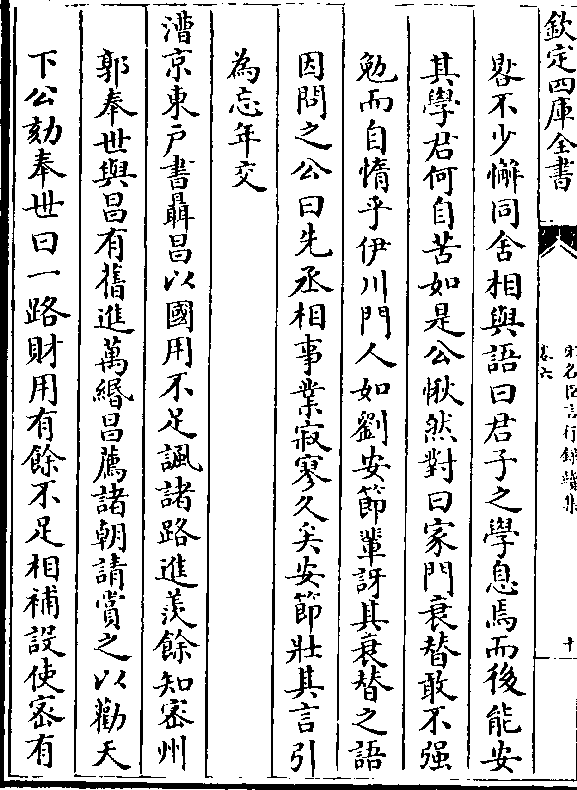 欽定四庫全書
宋名臣言行錄續集
卷六
十
晷不少懈同舍相與語曰君子之學息焉而後能安
其學君何自苦如是公愀然對曰家門衰替敢不强
勉而自惰乎伊川門人如劉安節輩訝其衰替之語
因問之公曰先丞相事業寂寥久矣安節壯其言引
為忘年交
漕京東戶書聶昌以國用不足諷諸路進羡餘知密州
郭奉世與昌有舊進萬緡昌薦諸朝請賞之以勸天
下公劾奉世曰一路財用有餘不足相補設使密有